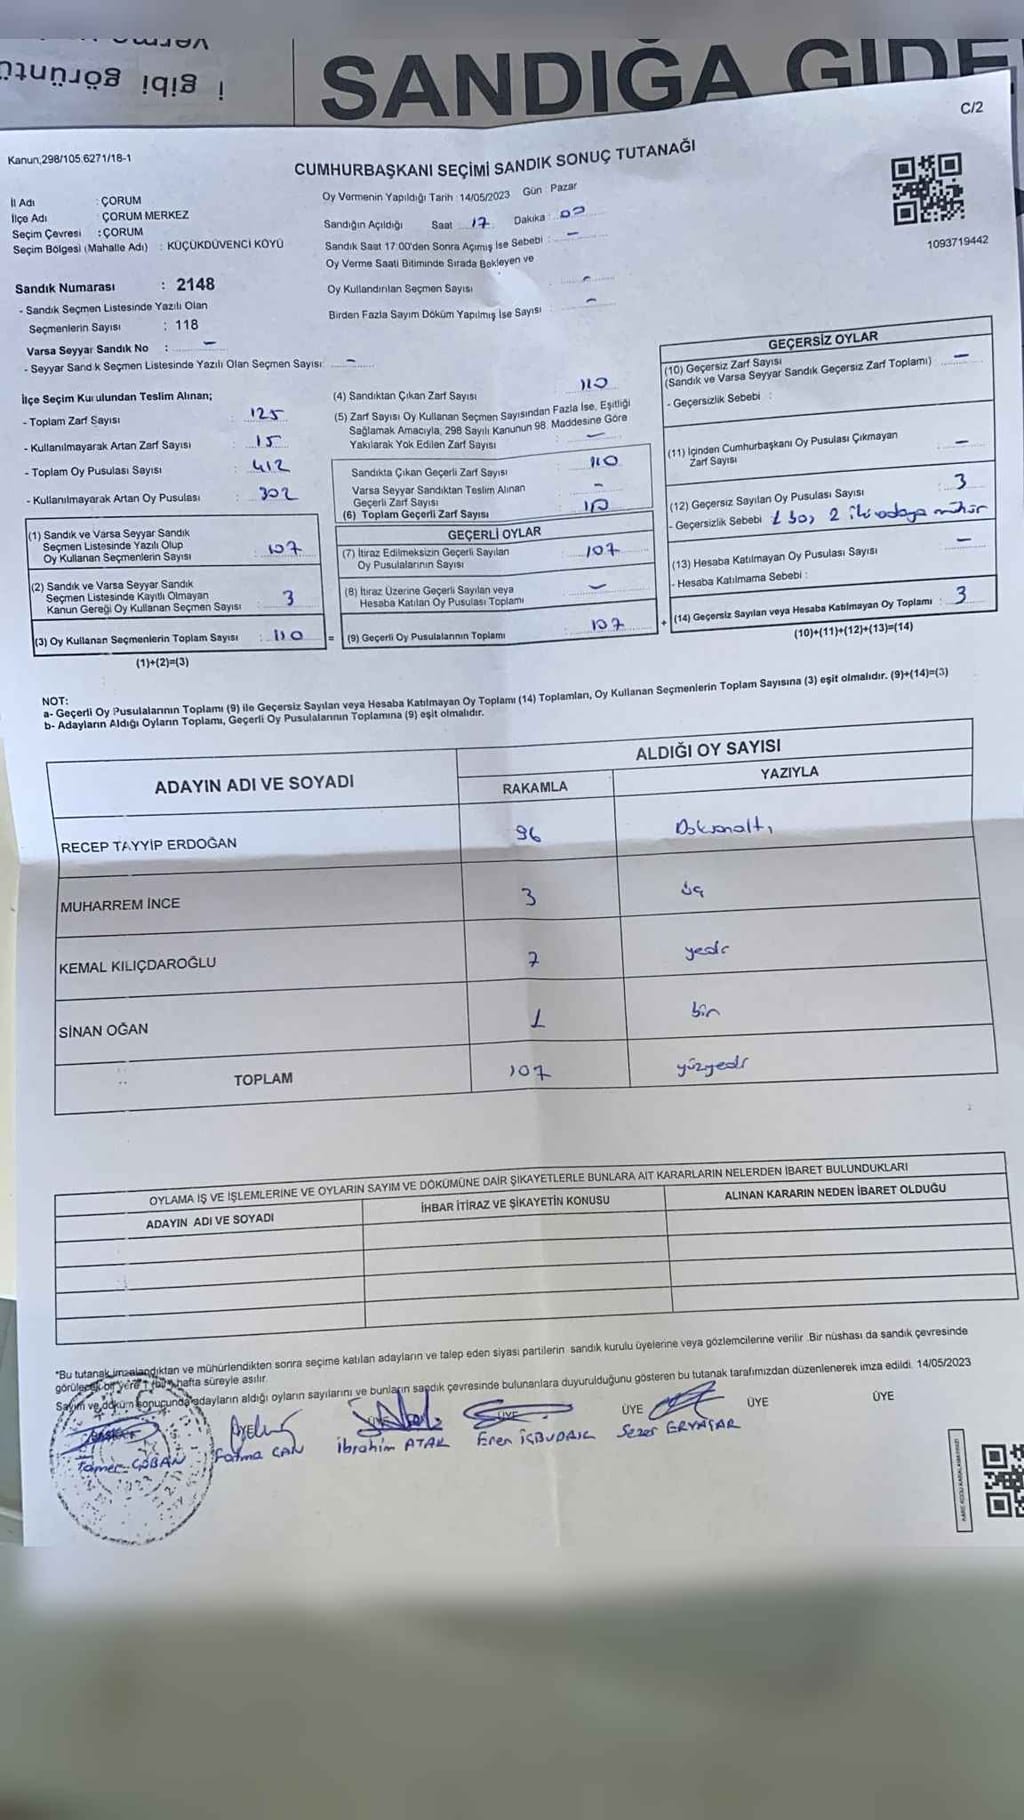 verme
i gibi görüntü
SANDIĞA GİDE
C/2
Kanun;298/105.6271/18-1
CUMHURBAŞKANI SEÇİMİ SANDIK SONUÇ TUTANAĞI
İl Adı : ÇORUM
İlçe Adı : ÇORUM MERKEZ
Seçim Çevresi : ÇORUM
Seçim Bölgesi (Mahalle Adı) : KÜÇÜKDÜVENCİ KÖYÜ
Oy Vermenin Yapıldığı Tarih : 14/05/2023 Gün : Pazar
Sandığın Açıldığı Saat 17 Dakika : 00
Sandık Saat 17:00'den Sonra Açımış İse Sebebi : -
Oy Verme Saati Bitiminde Sırada Bekleyen ve
Oy Kullandırılan Seçmen Sayısı -
Birden Fazla Sayım Döküm Yapılmış İse Sayısı -
1093719442
Sandık Numarası : 2148
- Sandık Seçmen Listesinde Yazılı Olan
Seçmenlerin Sayısı : 118
Varsa Seyyar Sandık No : -
- Seyyar Sandık Seçmen Listesinde Yazılı Olan Seçmen Sayısı: -
İlçe Seçim Kurulundan Teslim Alınan;
- Toplam Zarf Sayısı : 125
- Kullanılmayarak Artan Zarf Sayısı : 15
- Toplam Oy Pusulası Sayısı : 412
- Kullanılmayarak Artan Oy Pusulası : 302
(1) Sandık ve Varsa Seyyar Sandık
Seçmen Listesinde Yazılı Olup
Oy Kullanan Seçmenlerin Sayısı : 107
(2) Sandık ve Varsa Seyyar Sandık
Seçmen Listesinde Kayıtlı Olmayan
Kanun Gereği Oy Kullanan Seçmen Sayısı : 3
(3) Oy Kullanan Seçmenlerin Toplam Sayısı : 110
(1)+(2)=(3)
(4) Sandıktan Çıkan Zarf Sayısı 110
(5) Zarf Sayısı Oy Kullanan Seçmen Sayısından Fazla İse, Eşitliği
Sağlamak Amacıyla, 298 Sayılı Kanunun 98. Maddesine Göre
Yakılarak Yok Edilen Zarf Sayısı -
Sandıkta Çıkan Geçerli Zarf Sayısı 110
Varsa Seyyar Sandıktan Teslim Alınan
Geçerli Zarf Sayısı -
(6) Toplam Geçerli Zarf Sayısı 110
GEÇERLİ OYLAR
(7) İtiraz Edilmeksizin Geçerli Sayılan
Oy Pusulalarının Sayısı 107
(8) İtiraz Üzerine Geçerli Sayılan veya
Hesaba Katılan Oy Pusulası Toplamı -
= (9) Geçerli Oy Pusulalarının Toplamı : 107
GEÇERSİZ OYLAR
(10) Geçersiz Zarf Sayısı
(Sandık ve Varsa Seyyar Sandık Geçersiz Zarf Toplamı) -
- Geçersizlik Sebebi :
(11) İçinden Cumhurbaşkanı Oy Pusulası Çıkmayan
Zarf Sayısı -
(12) Geçersiz Sayılan Oy Pusulası Sayısı : 3
- Geçersizlik Sebebi 1 boş 2 iki adaya mühür
(13) Hesaba Katılmayan Oy Pusulası Sayısı -
- Hesaba Katılmama Sebebi :
+ (14) Geçersiz Sayılan veya Hesaba Katılmayan Oy Toplamı : 3
(10)+(11)+(12)+(13)=(14)
NOT:
a- Geçerli Oy Pusulalarının Toplamı (9) ile Geçersiz Sayılan veya Hesaba Katılmayan Oy Toplamı (14) Toplamları, Oy Kullanan Seçmenlerin Toplam Sayısına (3) eşit olmalıdır. (9)+(14)=(3)
b- Adayların Aldığı Oyların Toplamı, Geçerli Oy Pusulalarının Toplamına (9) eşit olmalıdır.
ADAYIN ADI VE SOYADI ALDIĞI OY SAYISI
RAKAMLA YAZIYLA
RECEP TAYYİP ERDOĞAN 96 Doksanaltı
MUHARREM İNCE 3 üç
KEMAL KILIÇDAROĞLU 7 yedi
SİNAN OĞAN 1 bir
TOPLAM 107 yüzyedi
OYLAMA İŞ VE İŞLEMLERİNE VE OYLARIN SAYIM VE DÖKÜMÜNE DAİR ŞİKAYETLERLE BUNLARA AİT KARARLARIN NELERDEN İBARET BULUNDUKLARI
ADAYIN ADI VE SOYADI İHBAR İTİRAZ VE ŞİKAYETİN KONUSU ALINAN KARARIN NEDEN İBARET OLDUĞU
*Bu tutanak imzalandıktan ve mühürlendikten sonra seçime katılan adayların ve talep eden siyasi partilerin sandık kurulu üyelerine veya gözlemcilerine verilir. Bir nüshası da sandık çevresinde
görülecek bir yere 1 (bir) hafta süreyle asılır.
Sayım ve döküm sonucunda adayların aldığı oyların sayılarını ve bunların sandık çevresinde bulunanlara duyurulduğunu gösteren bu tutanak tarafımızdan düzenlenerek imza edildi. 14/05/2023
BAŞKAN ÜYE ÜYE ÜYE ÜYE ÜYE ÜYE
Tamer ÇOBAN Fatma CAN İbrahim ATAK Eren İÇBUDAK Sezer ERYAŞAR